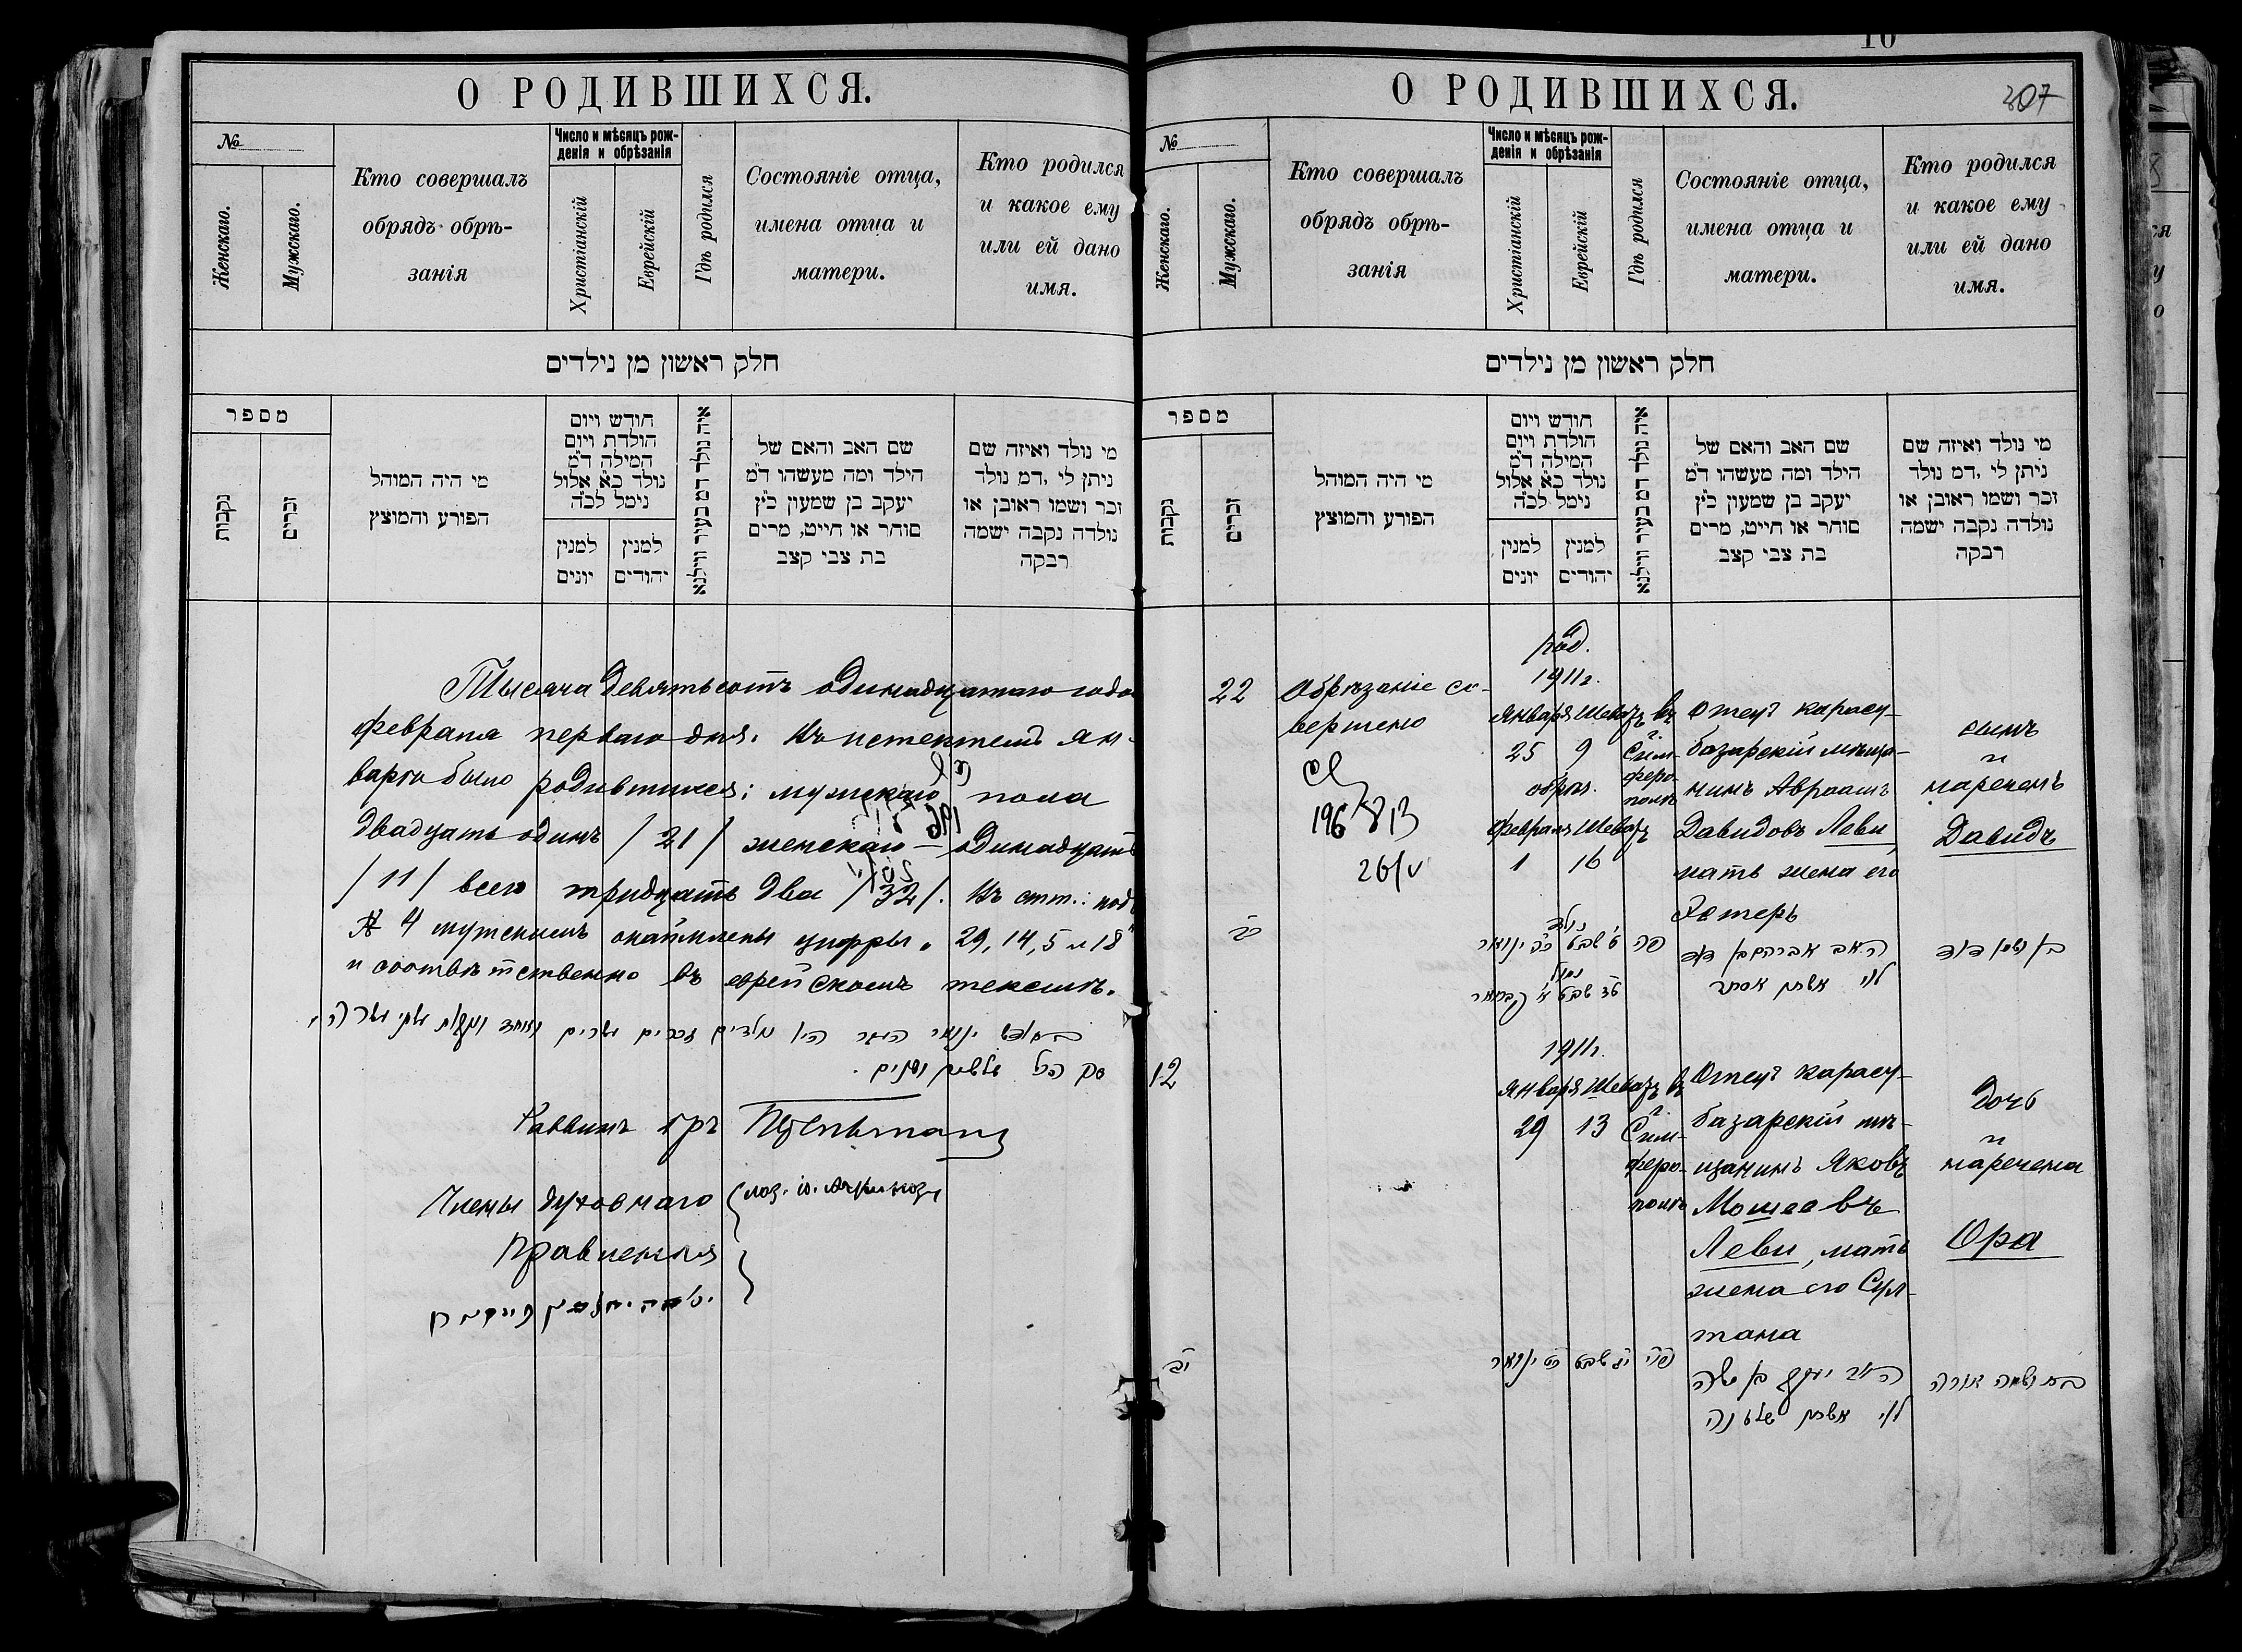 О РОДИВШИХСЯ.
№
Женскаго.
Мужскаго.
Кто совершалъ
обрядъ обрѣ-
занія
Число и мѣсяцъ рож-
денія и обрѣзанія
Христіанскій
Еврейскій
Гдѣ родился
Состояніе отца,
имена отца и
матери.
Кто родился
и какое ему
или ей дано
имя.
חלק ראשון מן נילדים
מספר
נקבות
זכרים
מי היה המוהל
הפורע והמוצץ
חודש ויום
הולדת ויום
המילה ד"מ
נולד כ"א אלול
נימל לכ"ה
למנין
יונים
למנין
יהודים
איה נולד דמ בעיר ווילנא
שם האב והאם של
הילד ומה מעשהו ד"מ
יעקב בן שמעון כ"ץ
סוחר או חייט, מרים
בת צבי קצב
מי נולד ואיזה שם
ניתן לי ,דמ נולד
זכר ושמו ראובן או
נולדה נקבה ישמה
רבקה
Тысяча девятьсотъ одинадцатаго года
февраля перваго дня. Въ истекшемъ ян-
варѣ было родившихся: мужскаго пола
двадцать одинъ /21/ женскаго — одинадцать
/11/ всего тридцать два /32/. Въ стт.: подъ
№ 4 мужскимъ окаймлены цифры. 29, 14, 5 и 18
и соотвѣтственно въ еврейскомъ текстѣ.
סך הכל שלשים ושנים.
Раввинъ
Члены духовнаго
Правленія
10
О РОДИВШИХСЯ.
307
№
Женскаго.
Мужскаго.
Кто совершалъ
обрядъ обрѣ-
занія
Число и мѣсяцъ рож-
денія и обрѣзанія
Христіанскій
Еврейскій
Гдѣ родился
Состояніе отца,
имена отца и
матери.
Кто родился
и какое ему
или ей дано
имя.
חלק ראשון מן נילדים
מספר
נקבות
זכרים
מי היה המוהל
הפורע והמוצץ
חודש ויום
הולדת ויום
המילה ד"מ
נולד כ"א אלול
נימל לכ"ה
למנין
יונים
למנין
יהודים
איה נולד דמ בעיר ווילנא
שם האב והאם של
הילד ומה מעשהו ד"מ
יעקב בן שמעון כ"ץ
סוחר או חייט, מרים
בת צבי קצב
מי נולד ואיזה שם
ניתן לי ,דמ נולד
זכר ושמו ראובן או
נולדה נקבה ישמה
רבקה
22
Обрѣзаніе со-
вершено
род.
1911г.
Января Шеватъ
25 9
обрѣз.
Февраля Шеватъ
1 16
въ
г.
Сим-
феро-
полѣ
Отецъ карасу-
базарскій мѣща-
нинъ Авраамъ
Давидовъ Леви
мать жена его
Эстерь
сынъ
и
нареченъ
Давидъ
כב
נולד
ט' שבט כ"ה ינואר
נמול
ט"ז שבט א' פברואר
פה
האב אברהם בן דוד
לוי אשתו אסתר
בן ושמו דוד
12
1911г.
Января Шеватъ
29 13
въ
г.
Сим-
феро-
полѣ
Отецъ карасу-
базарскій мѣ-
щанинъ Яковъ
Мошеевъ
Леви, мать
жена его Сул-
тана
дочь
и
наречена
Ора
יב
י"ג שבט כ"ט ינואר
פה
האב יעקב בן משה
לוי אשתו שלטנה
בת ושמה אורה